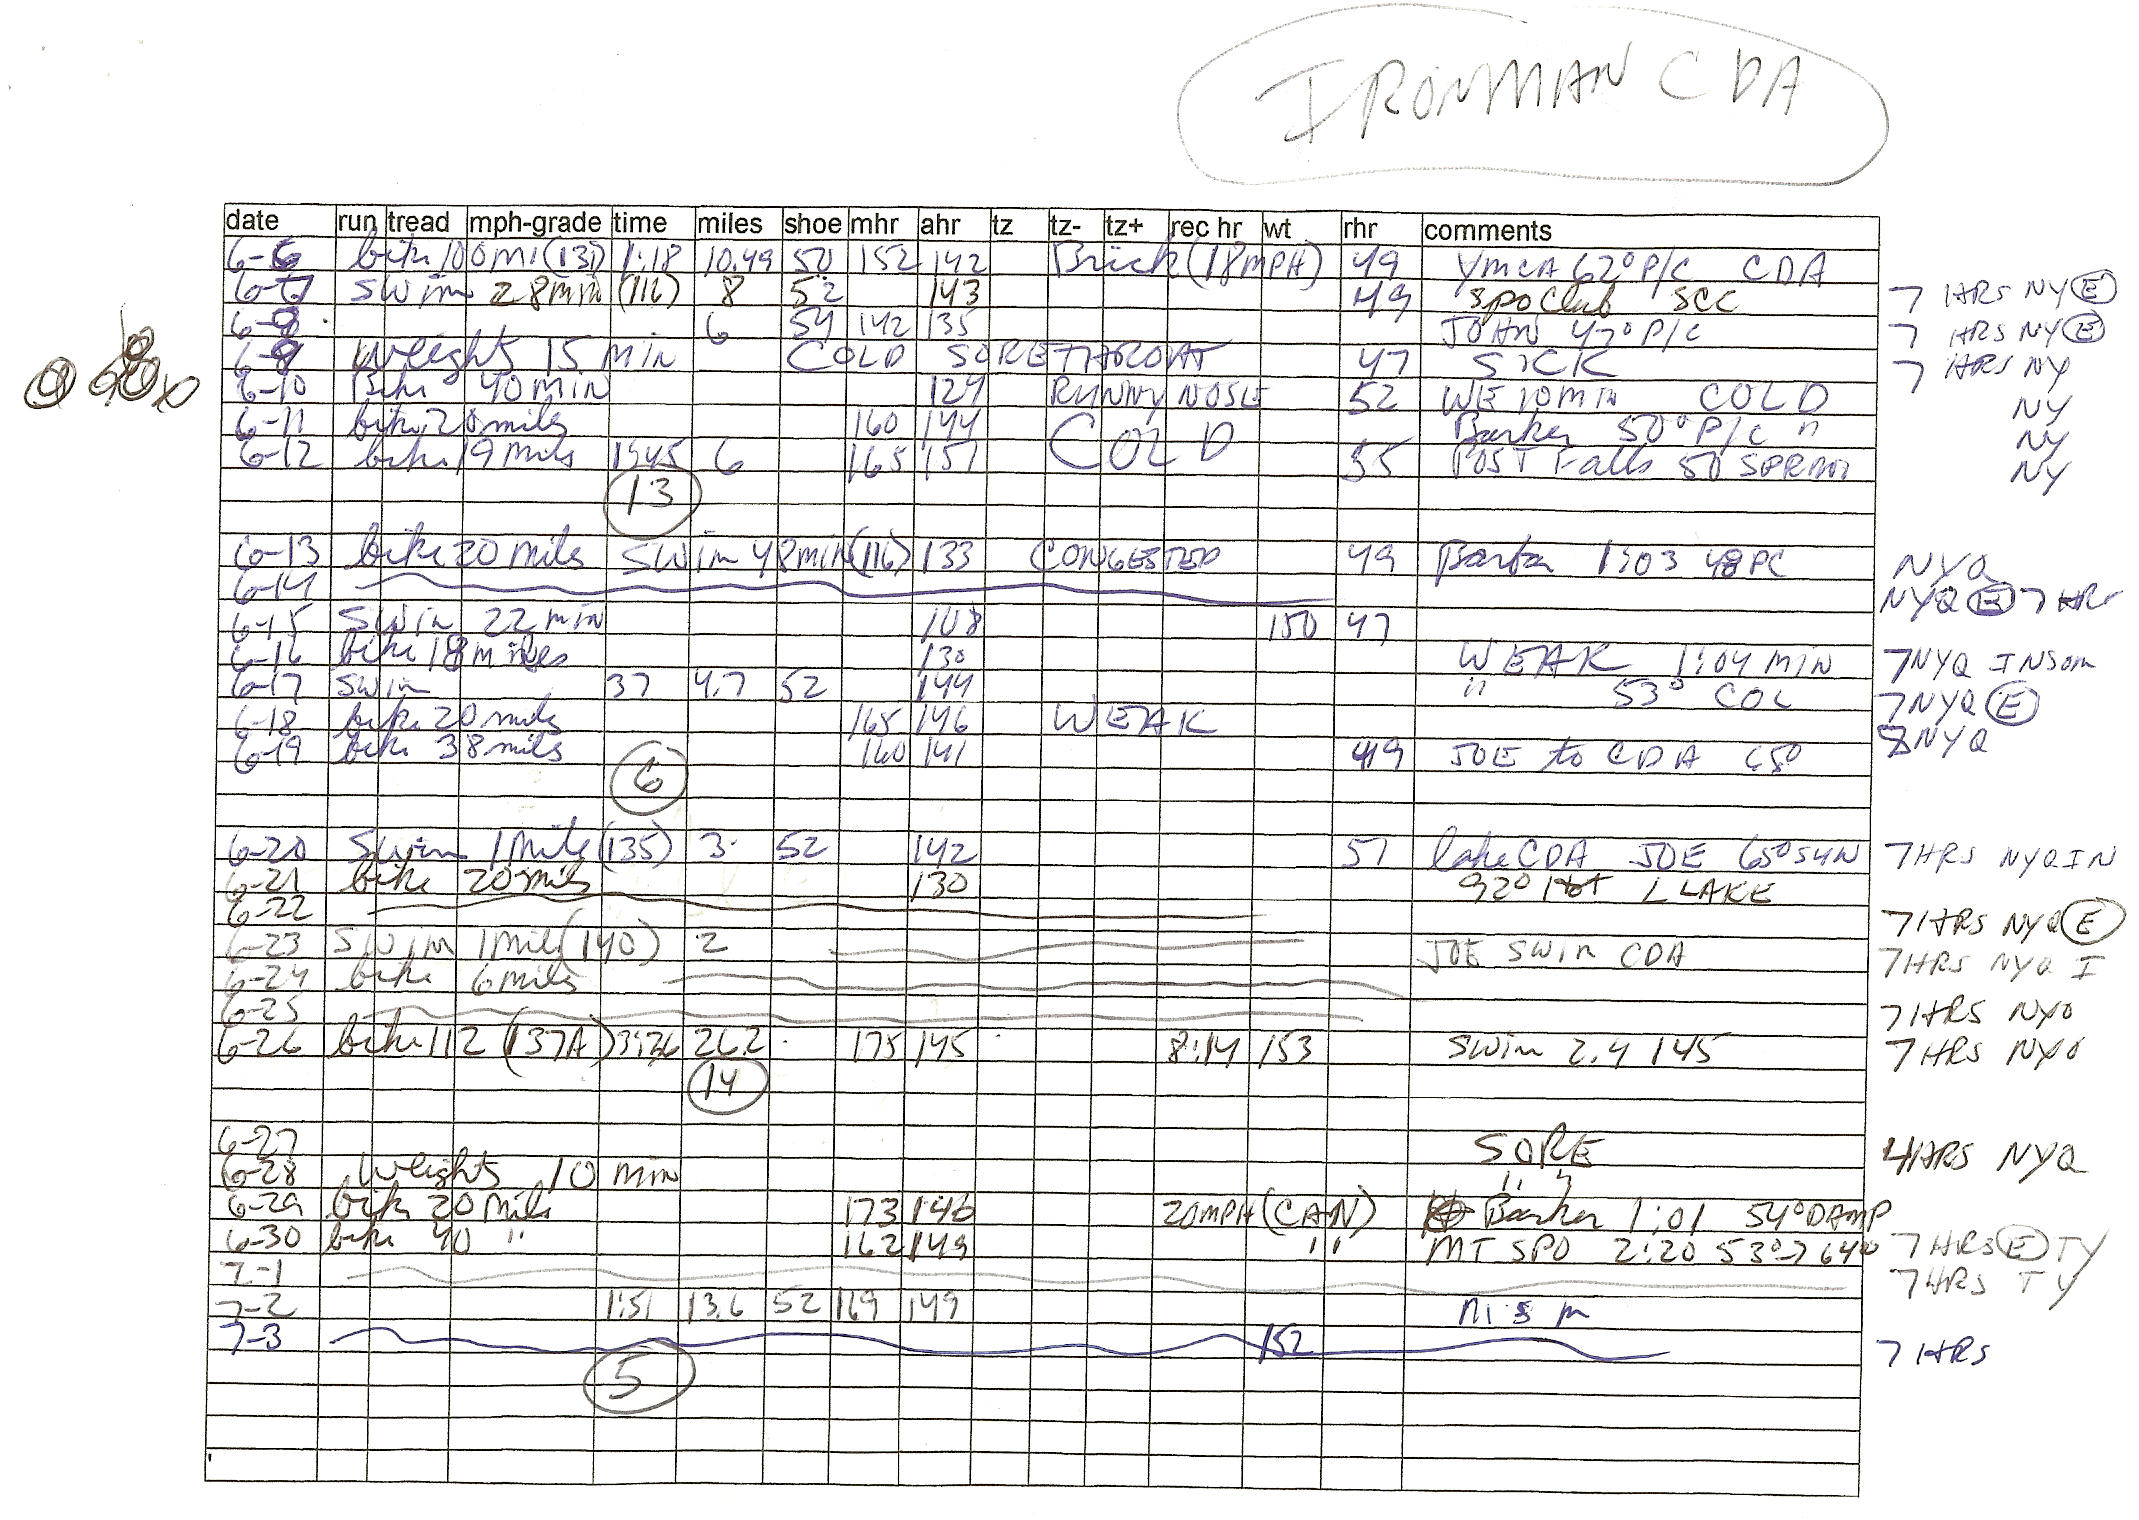 IRONMAN CDA
date run tread mph-grade time miles shoe mhr ahr tz tz- tz+ rec hr wt rhr comments
6-6 bike 100 mi (131) 1:18 10.49 50 152 142 Brick (18MPH) 49 YMCA 62° P/C CDA
6-7 swim 28 min (116) 8 52 143 49 Spo Club SCC 7 HRS NY E
6-8 6 54 142 135 JOHN 47° P/C 7 HRS NY E
6-9 Weights 15 min COLD SORE THROAT 47 SICK 7 HRS NY
6-10 Bike 40 MIN 124 RUNNY NOSE 52 WE 10 MIN COLD NY
6-11 bike 20 miles 160 144 COLD Barker 50° P/C " NY
6-12 bike 19 miles 1:45 6 165 151 55 POST Falls 50 NY
13
6-13 bike 20 miles SWim 48 min (116) 133 CONGESTED 49 1:03 48 PC NYQ
6-14 NYQ E 7 HRS
6-15 SWim 22 min 108 150 47
6-16 bike 18 miles 130 WEAK 1:04 MIN 7 NYQ INSOM
6-17 swim 37 4.7 52 144 " 53° COL 7 NYQ E
6-18 bike 20 miles 165 146 WEAK 8 NYQ
6-19 bike 38 miles 160 141 49 JOE to CDA 65°
6
6-20 Swim 1 Mile (135) 3 52 142 51 lake CDA JOE 65° SUN 7 HRS NYQ IN
6-21 bike 20 miles 130 92° Hot L LAKE
6-22 7 HRS NYQ E
6-23 SWIM 1 mile (140) 2 JOE SWIM CDA 7 HRS NYQ I
6-24 bike 6 miles
6-25 7 HRS NYQ
6-26 bike 112 (137A) 3:36 26.2 175 145 8:14 153 Swim 2.4 145 7 HRS NYQ
14
6-27 SORE 4 HRS NYQ
6-28 Weights 10 min " "
6-29 bike 20 Miles 173 146 20MPH (CAN) Barker 1:01 54° DAMP
6-30 bike 40 " 162 149 " MT SPO 2:20 53°→64° 7 HRS E TY
7-1 7 HRS TY
7-2 1:51 13.6 52 169 149
7-3 152 7 HRS
5